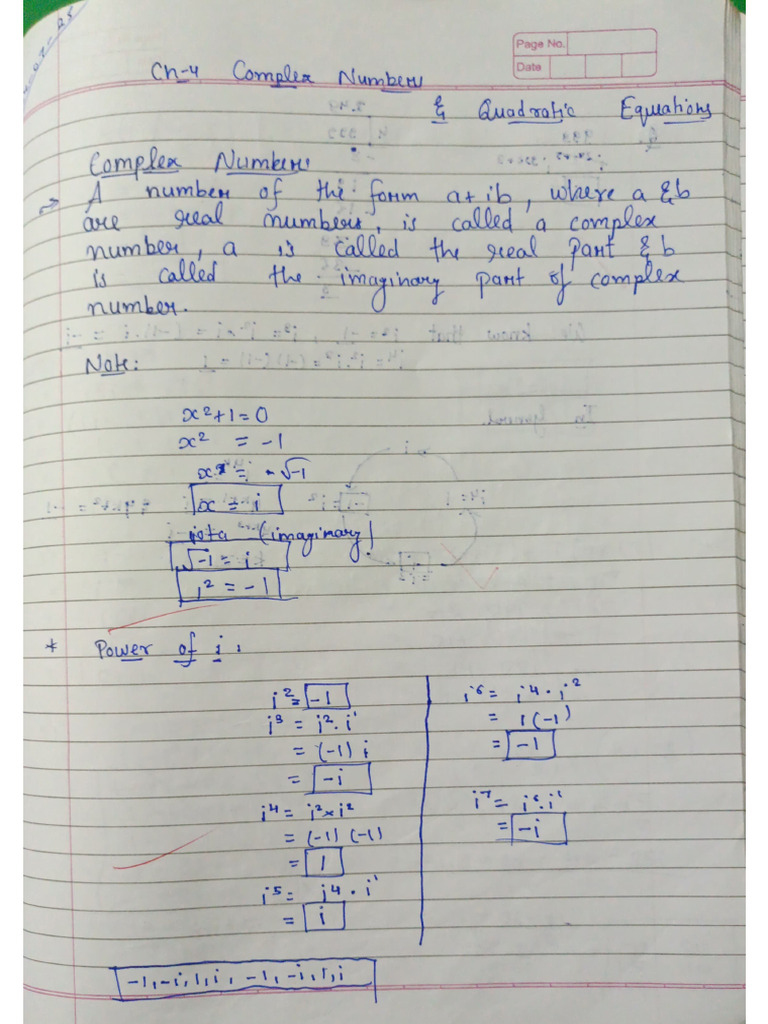 Page No.
Date
Ch-4 Complex Numbers
& Quadratic Equations
Complex Number:
→ A number of the form a+ib, where a & b
are real numbers, is called a complex
number, a is called the real part & b
is called the imaginary part of complex
number.
Note:
x²+1=0
x² = -1
x = √-1
x = i
iota (imaginary)
√-1 = i
i² = -1
* Power of i:
i² = -1
i³ = i².i¹
= (-1) i
= -i
i⁴ = i²×i²
= (-1) (-1)
= 1
i⁵ = i⁴.i¹
= i
i⁶ = i⁴.i²
= 1(-1)
= -1
i⁷ = i⁶.i¹
= -i
-1, -i, 1, i, -1, -i, 1, i